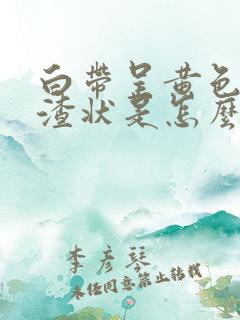 白帶呈黄色
渣状是怎麽
李彦琴
未经同意禁止转载